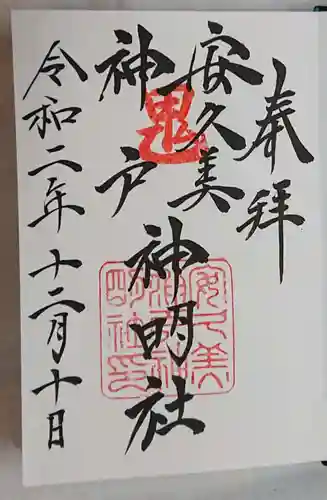 奉拝
安久美
神戸
神明社
鬼
安久美神戸神明社印
令和二年十二月十日